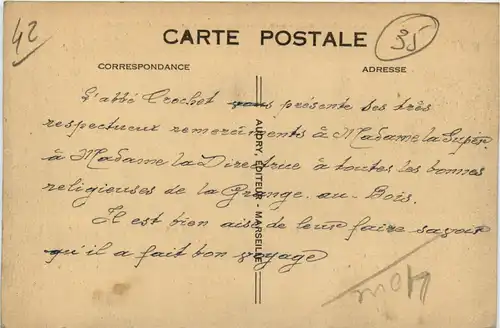 42
35
CARTE POSTALE
CORRESPONDANCE
ADRESSE
L'abbé Crochet présente ses très
respectueux remerciments à Madame la Supér.
à Madame la Directrice à toutes les bonnes
religieuses de la Grange-au-Bois.
Il est bien aise de leur faire savoir
qu'il a fait bon voyage
AUDRY, EDITEUR - MARSEILLE